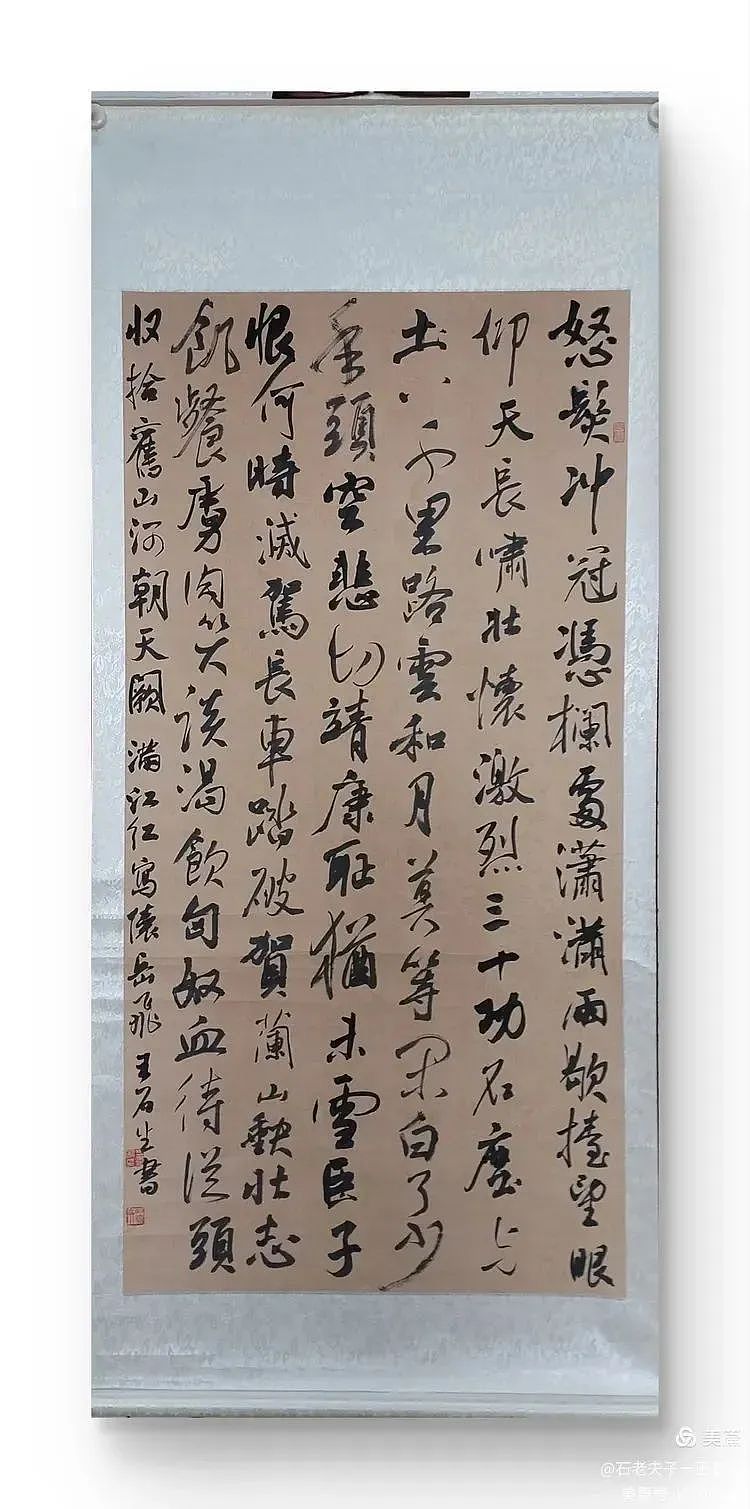 怒髮冲冠憑欄處瀟瀟雨歇擡望眼
仰天長嘯壯懷激烈三十功名塵与
土八千里路雲和月莫等閑白了少
年頭空悲切靖康耻猶未雪臣子
恨何時滅駕長車踏破賀蘭山缺壯志
飢餐虜肉笑談渴飲匈奴血待從頭
收拾舊山河朝天闕 滿江紅寫懷岳飛 王石生書
美篇
@石老夫子一王